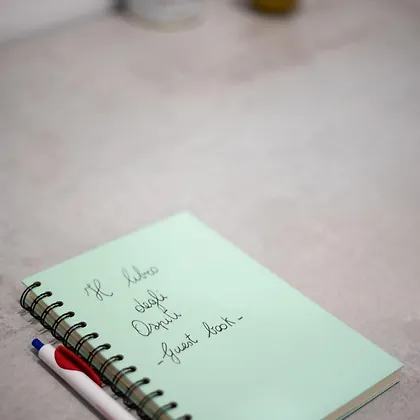 Il libro
degli
Ospiti
-Guest book-